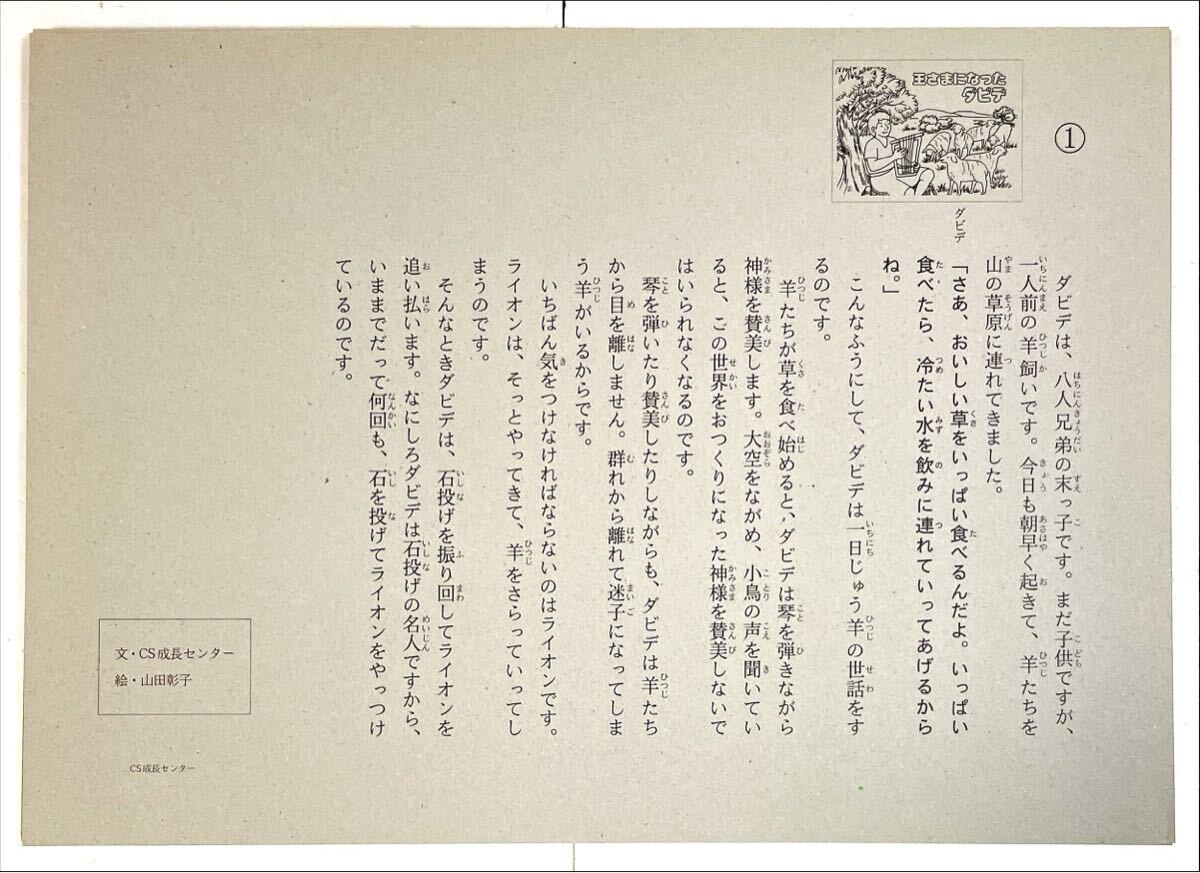 ①
王さまになった
ダビデ
ダビデは、八人兄弟の末っ子です。まだ子供ですが、
一人前の羊飼いです。今日も朝早く起きて、羊たちを
山の草原に連れてきました。
ダビデ
「さあ、おいしい草をいっぱい食べるんだよ。いっぱい
食べたら、冷たい水を飲みに連れていってあげるから
ね。」
こんなふうにして、ダビデは一日じゅう羊の世話をす
るのです。
羊たちが草を食べ始めると、ダビデは琴を弾きながら
神様を賛美します。大空をながめ、小鳥の声を聞いてい
ると、この世界をおつくりになった神様を賛美しないで
はいられなくなるのです。
琴を弾いたり賛美したりしながらも、ダビデは羊たち
から目を離しません。群れから離れて迷子になってしま
う羊がいるからです。
いちばん気をつけなければならないのはライオンです。
ライオンは、そっとやってきて、羊をさらっていってし
まうのです。
そんなときダビデは、石投げを振り回してライオンを
追い払います。なにしろダビデは石投げの名人ですから、
いままでだって何回も、石を投げてライオンをやっつけ
ているのです。
文・CS成長センター
絵・山田彰子
CS成長センター